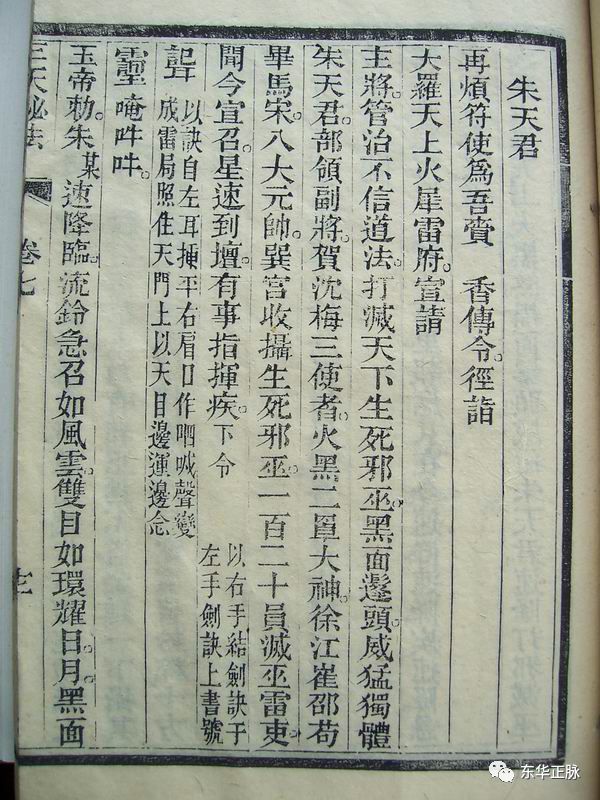 朱天君
再煩符使爲吾賫　香傳令。徑詣
大羅天上火犀雷府。宣請
主將。管治不信道法。打滅天下生死邪巫。黑面鬔頭。威猛獨體
朱天君。部領副將。賀沈梅三使者。火黑二單大神。徐江崔邵苟
畢馬宋。八大元帥。巽宮收攝生死邪巫。一百二十員滅巫雷吏。
聞今宣召。星速到壇。有事指揮疾。下令
以右手結劍訣于
左手劍訣上書號
以訣自左耳 平右眉口作 喊聲變
成雷局照住天門上以天目邊運邊念
唵吽吽。
玉帝勅朱某速降臨。流鈴急召如風雲。雙目如環耀日月。黑面
天秘法
卷七